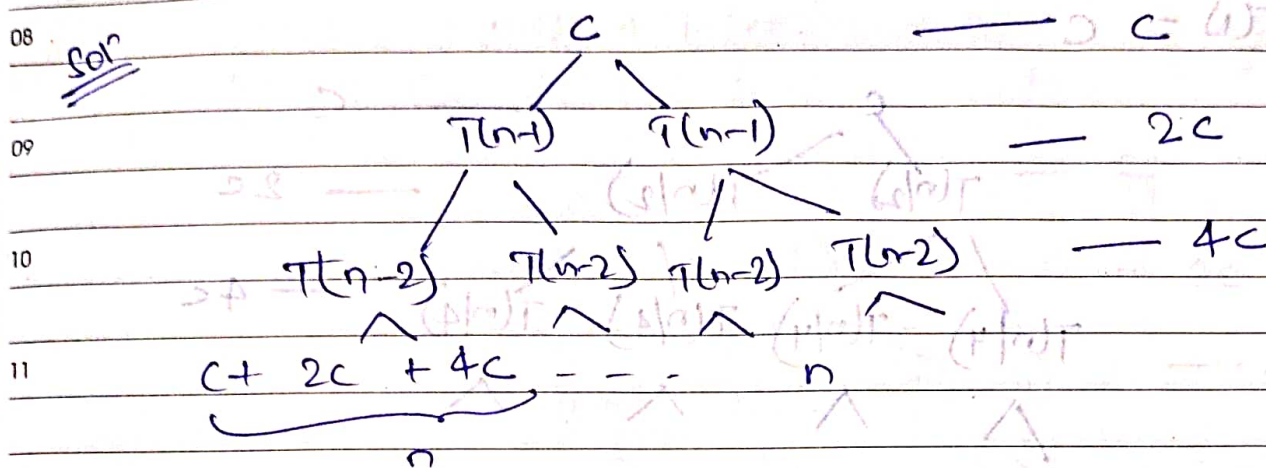 08 Solⁿ C — C
09 T(n-1) T(n-1) — 2C
10 T(n-2) T(n-2) T(n-2) T(n-2) — 4C
11 C + 2C + 4C - - - n
n